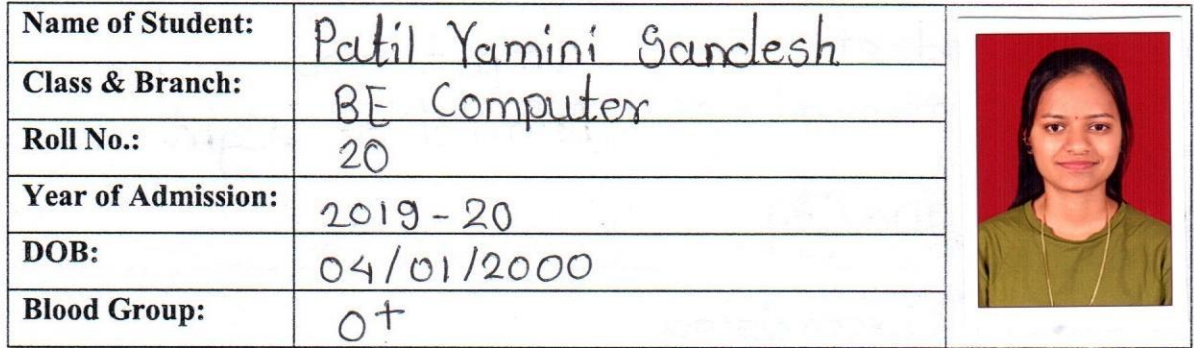 Name of Student: Patil Yamini Sandesh
Class & Branch: BE Computer
Roll No.: 20
Year of Admission: 2019-20
DOB: 04/01/2000
Blood Group: O+